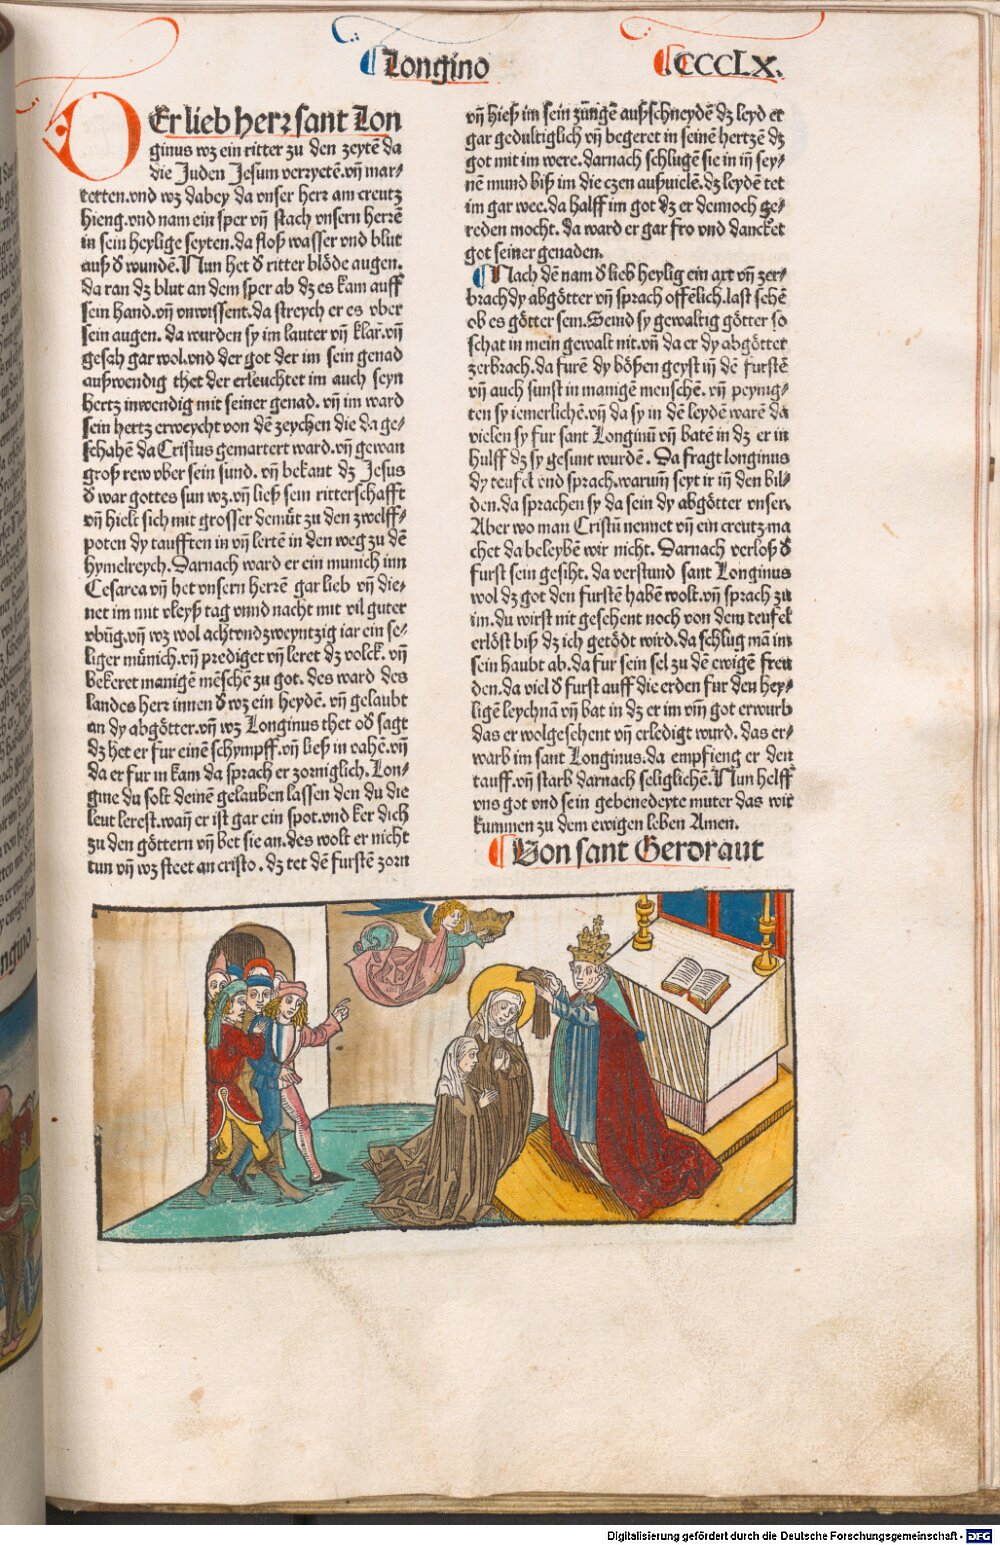 Longino
.CCCLX.
DEr lieb herr sant Lon
ginus wz ein ritter zu den zeytē da
die Juden Jesum verrytē.vñ mar-
terten.vnd wz dabey da vnser herr am creutz
hieng.vnd nam ein sper vñ stach vnsern herrē
in sein heylige seyten.da floß wasser vnd blut
auß d̕ wundē.Nun het d̕ ritter blöde augen.
da ran dz blut an dem sper ab dz es kam auff
sein hand.vñ vnwissent.da streych er es vber
sein augen. da wurden sy im lauter vñ klar.vñ
gesah gar wol.vnd der got der im sein genad
außwendig thet der erleuchtet im auch seyn
hertz inwendig mit seiner genad. vñ im ward
sein hertz erweycht von dē zeychen die da ge-
schahē da Cristus gemartert ward.vñ gewan
groß rew vber sein sund. vñ bekant dz Jesus
d̕ war gottes sun wz.vñ ließ sein ritterschafft
vñ hielt sich mit grosser demüt zu den zwelff-
poten dy taufften in vñ lertē in den weg zu dē
hymelreych.Darnach ward er ein munich inn
Cesarea vñ het vnsern herrē gar lieb vñ die-
net im mit vleyß tag vnnd nacht mit vil guter
vbūg.vñ wz wol achtvndzweyntzig iar ein se-
liger münich.vñ prediget vñ leret dz volck. vñ
bekeret manigē mēschē zu got. des ward des
landes herr innen d̕ wz ein heydē. vñ gelaubt
an dy abgötter.vñ wz Longinus thet od̕ sagt
dz het er fur einē schympff.vñ ließ in vahē.vñ
da er fur in kam da sprach er zorniglich. Lon-
gine du solt deinē gelauben lassen den du die
leut lerest.wañ er ist gar ein spot.vnd ker dich
zu den göttern vñ bet sie an.des wolt er nicht
tun vñ wz steet an cristo. dz tet dē furstē zorn
vñ hieß im sein zūngē außschneydē dz leyd er
gar gedultiglich vñ begeret in seinē hertzē dz
got mit im were.darnach schlugē sie in iñ sey-
nē mund biß im die czen außvielē.dz leydē tet
im gar wee.da halff im got dz er dennoch ge-
reden mocht. da ward er gar fro vnd dancket
got seiner genaden.
Nach dē nam d̕ lieb heylig ein axt vñ zer-
brach dy abgötter vñ sprach offēlich.last sehē
ob es götter sein.Seind sy gewaltig götter so
schat in mein gewalt nit.vñ da er dy abgötter
zerbrach.da furē dy bößen geyst iñ dē furstē
vñ auch sunst in manigē menschē. vñ peynig-
ten sy iemerlichē.vñ da sy in dē leydē warē da
vielen sy fur sant Longinū vñ batē in dz er in
hulff dz sy gesunt wurdē. Da fragt longinus
dy teufel vnd sprach.warum̄ seyt ir iñ den bil-
den.da sprachen sy da sein dy abgötter vnser.
Aber wo man Cristū nennet vñ ein creutz ma
chet da beleybē wir nicht. Darnach verloß d̕
furst sein gesiht. da verstund sant Longinus
wol dz got den furstē habē wolt.vñ sprach zu
im.du wirst nit gesehent noch von dem teufel
erlöst biß dz ich getödt wird.da schlug mā im
sein haubt ab.da fur sein sel zu dē ewigē freu
den.da viel d̕ furst auff die erden fur den hey-
ligē leychnā vñ bat in dz er im vm̄ got erwurb
das er wolgesehent vñ erledigt wurd. das er-
warb im sant Longinus.da empfieng er den
tauff.vñ starb darnach seliglichē.Nun helff
vns got vnd sein gebenedeyte muter das wir
kummen zu dem ewigen leben Amen.
Von sant Gerdraut
Digitalisierung gefördert durch die Deutsche Forschungsgemeinschaft - DFG